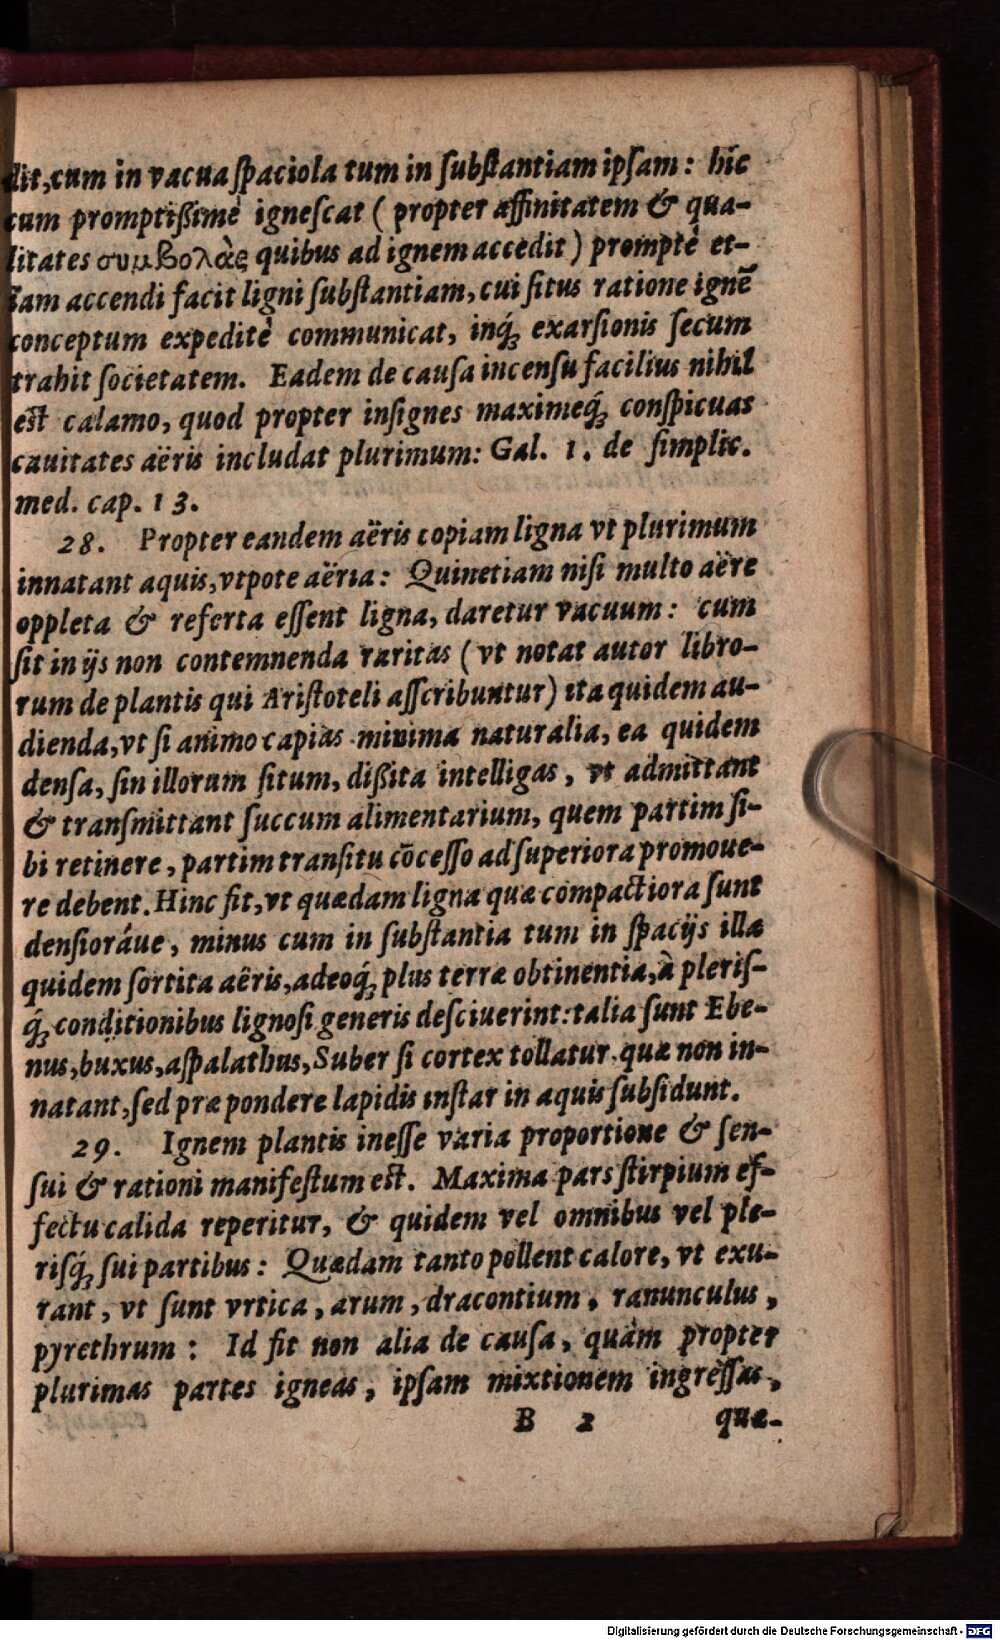 dit, cum in vacua ſpaciola tum in ſubſtantiam ipſam: hic
cum promptißimè igneſcat (propter affinitatem & qua-
litates συμβολὰς quibus ad ignem accedit) promptè et-
iam accendi facit ligni ſubſtantiam, cui ſitus ratione ignē
conceptum expeditè communicat, inq́; exarſionis ſecum
trahit ſocietatem. Eadem de cauſa incenſu facilius nihil
est calamo, quod propter inſignes maximeq́; conſpicuas
cauitates aëris includat plurimum: Gal. 1. de ſimplic.
med. cap. 13.
28. Propter eandem aëris copiam ligna vt plurimum
innatant aquis, vtpote aëria: Quinetiam niſi multo aëre
oppleta & referta eſſent ligna, daretur vacuum: cum
ſit in ijs non contemnenda raritas (vt notat autor libro-
rum de plantis qui Ariſtoteli aſſcribuntur) ita quidem au-
dienda, vt ſi animo capias minima naturalia, ea quidem
denſa, ſin illorum ſitum, dißita intelligas, vt admittant
& tranſmittant ſuccum alimentarium, quem partim ſi-
bi retinere, partim tranſitu cōceſſo ad ſuperiora promoue-
re debent. Hinc fit, vt quædam ligna quæ compactiora ſunt
denſioráue, minus cum in ſubſtantia tum in ſpacijs illæ
quidem ſortita aëris, adeoq́; plus terræ obtinentia, à pleriſ-
q́; conditionibus lignoſi generis deſciuerint: talia ſunt Ebe-
nus, buxus, aſpalathus, Suber ſi cortex tollatur. quæ non in-
natant, ſed præ pondere lapidis inſtar in aquis ſubſidunt.
29. Ignem plantis ineſſe varia proportione & ſen-
ſui & rationi manifeſtum est. Maxima pars ſtirpium ef-
fectu calida reperitur, & quidem vel omnibus vel ple-
riſq́; ſui partibus: Quædam tanto pollent calore, vt exu-
rant, vt ſunt vrtica, arum, dracontium, ranunculus,
pyrethrum: Id fit non alia de cauſa, quàm propter
plurimas partes igneas, ipſam mixtionem ingreſſas,
B 2 quæ-
Digitalisierung gefördert durch die Deutsche Forschungsgemeinschaft - DFG